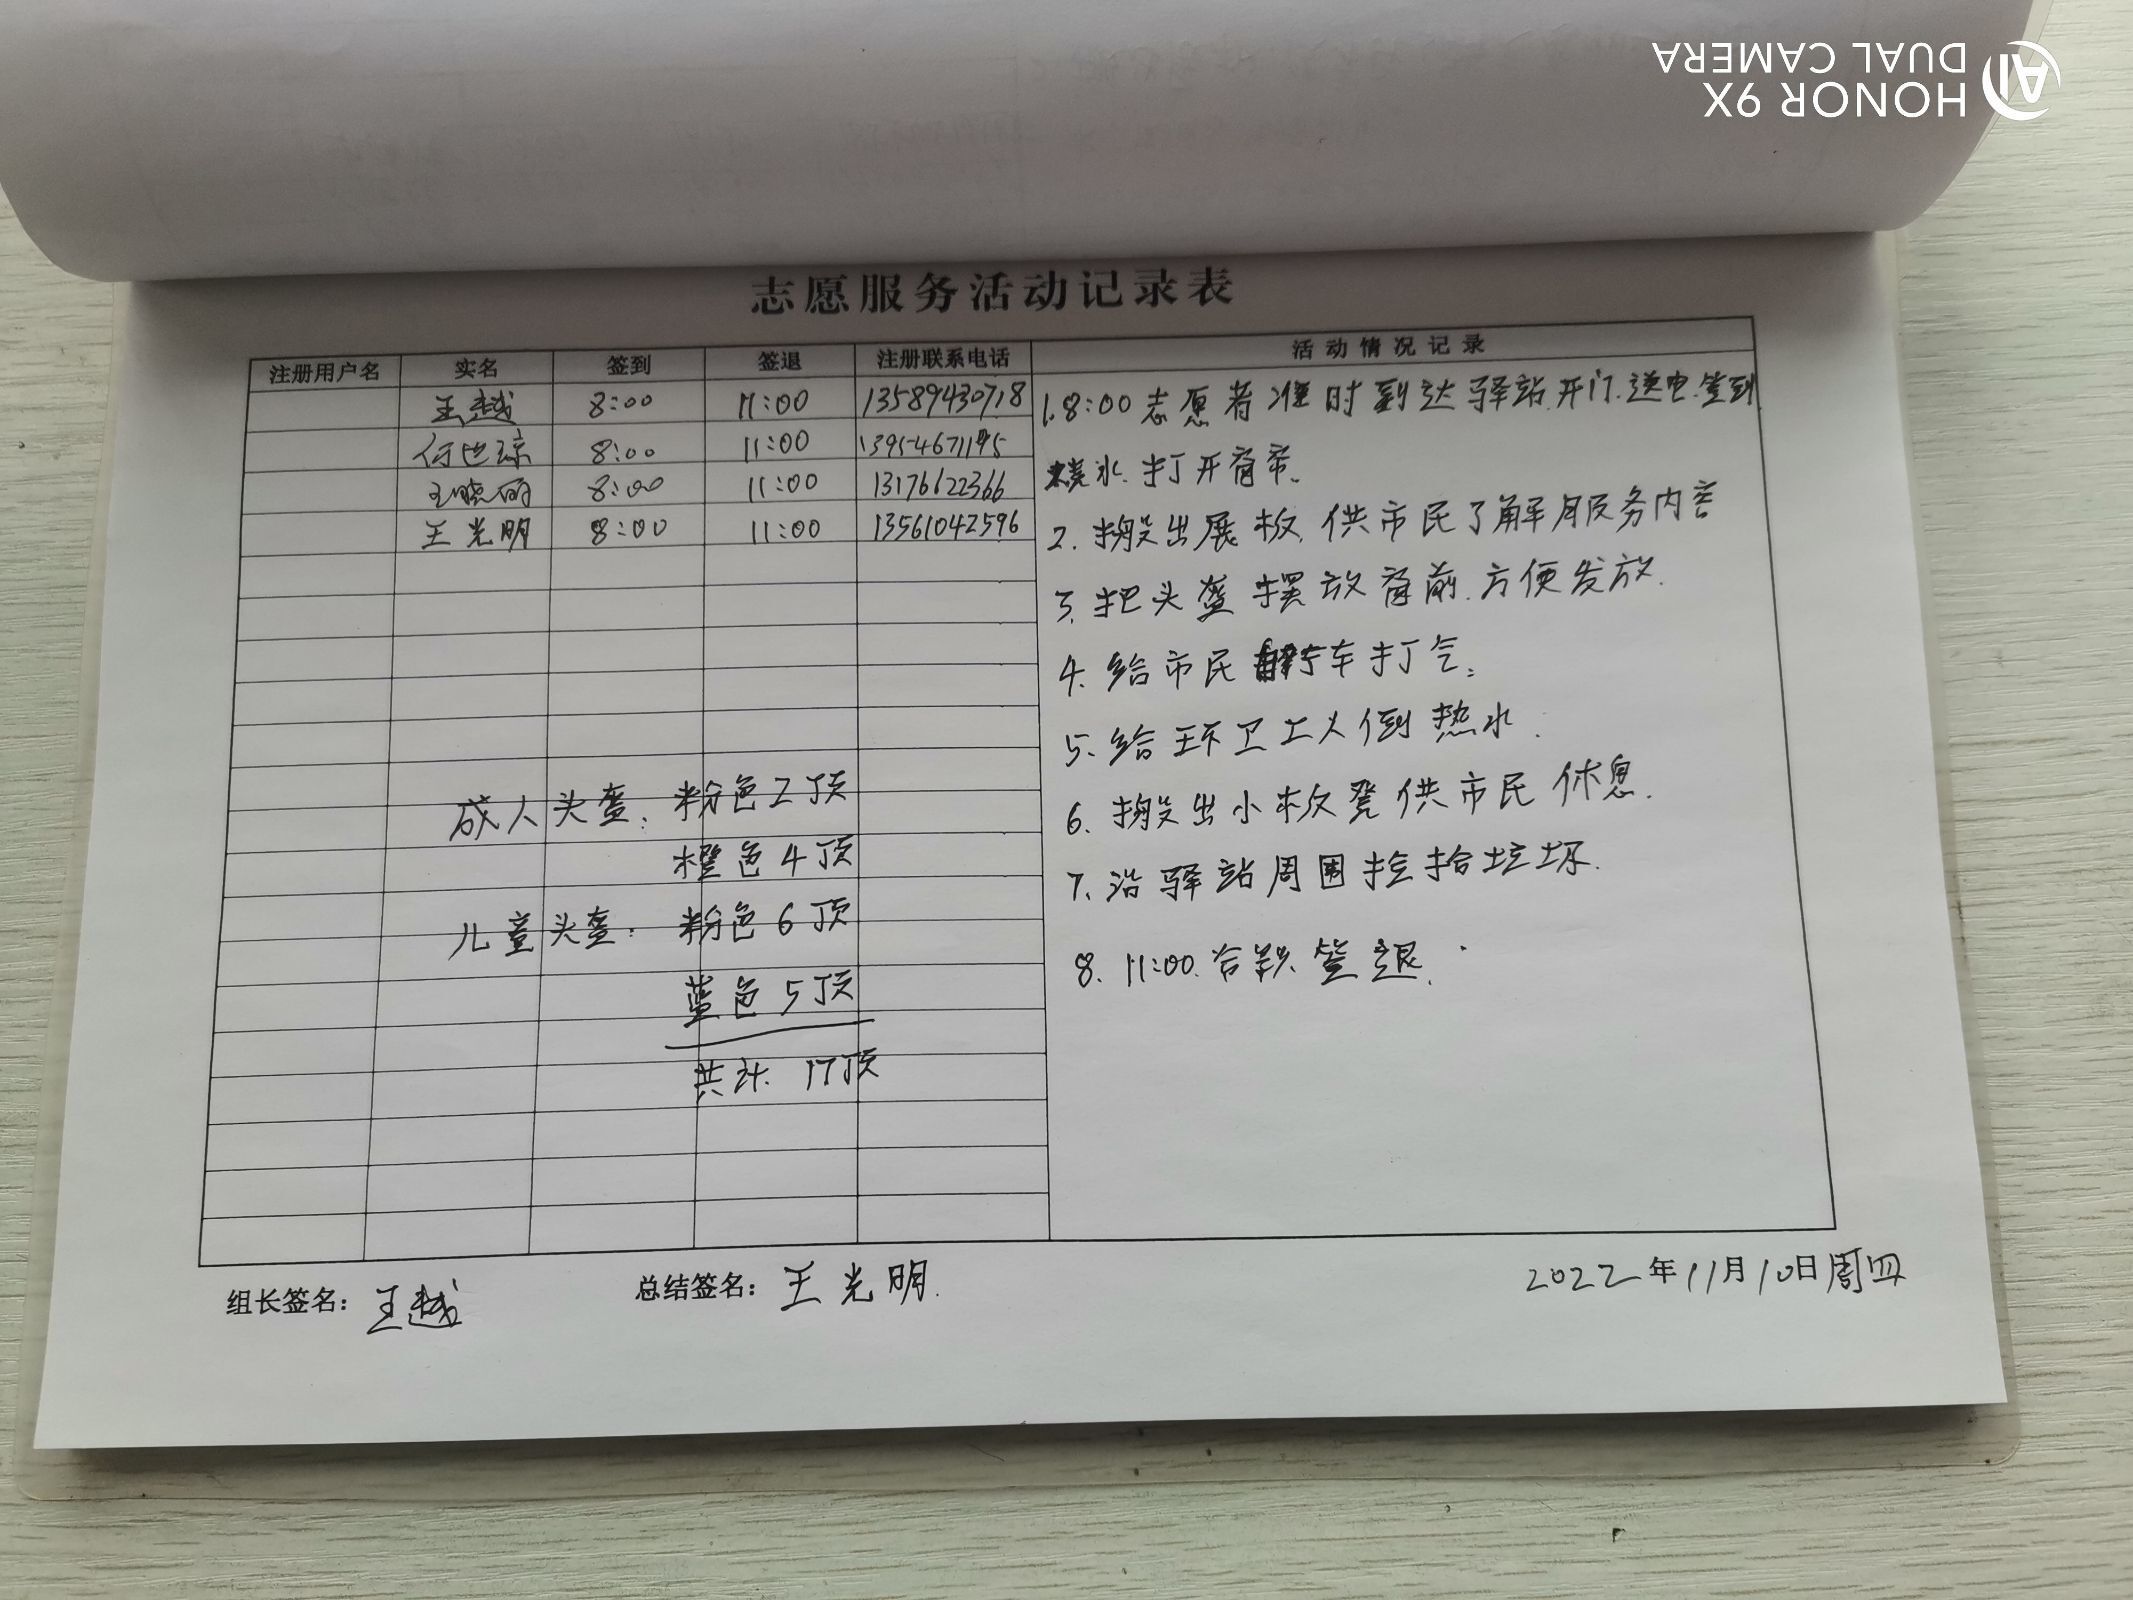 HONOR 9X
DUAL CAMERA
志愿服务活动记录表
注册用户名 实名 签到 签退 注册联系电话 活动情况记录
王越 8:00 11:00 13589430718
8:00 11:00
王晓丽 8:00 11:00 13176622366
王光明 8:00 11:00 13561042596
成人头盔:粉色2顶
橙色4顶
儿童头盔:粉色6顶
蓝色5顶
共计 17顶
1.8:00志愿者准时到达驿站.开门.送电.签到
烧水.打开窗帘。
2.搬出展板,供市民了解服务内容
3.把头盔摆放窗前.方便发放.
4.给市民自行车打气。
5.给环卫工人倒热水.
6.搬出小板凳供市民休息.
7.沿驿站周围捡拾垃圾.
8.11:00.合影签退.
组长签名:王越 总结签名:王光明. 2022年11月10日周四